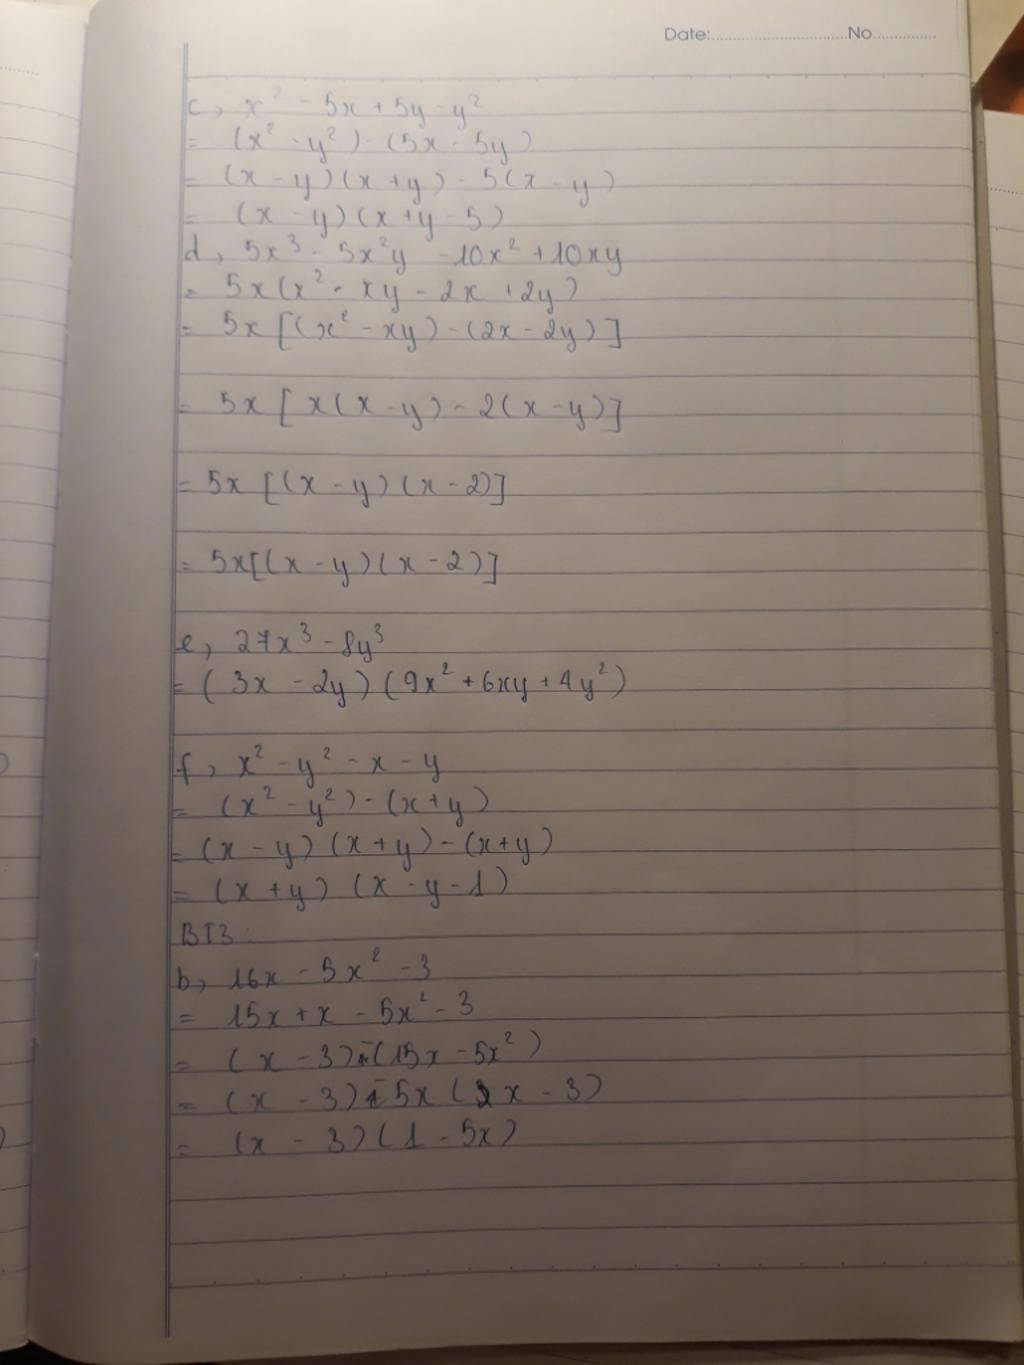 Date:..............................No..............
c, x² - 5x + 5y - y²
= (x² - y²) - (5x - 5y)
= (x - y)(x + y) - 5(x - y)
= (x - y)(x + y - 5)
d, 5x³ - 5x²y - 10x² + 10xy
= 5x(x² - xy - 2x + 2y)
= 5x[(x² - xy) - (2x - 2y)]
= 5x[x(x - y) - 2(x - y)]
= 5x[(x - y)(x - 2)]
= 5x[(x - y)(x - 2)]
e, 27x³ - 8y³
= (3x - 2y)(9x² + 6xy + 4y²)
f, x² - y² - x - y
= (x² - y²) - (x + y)
= (x - y)(x + y) - (x + y)
= (x + y)(x - y - 1)
BT3:
b, 16x - 5x² - 3
= 15x + x - 5x² - 3
= (x - 3) - (15x - 5x²)
= (x - 3) - 5x(x - 3)
= (x - 3)(1 - 5x)